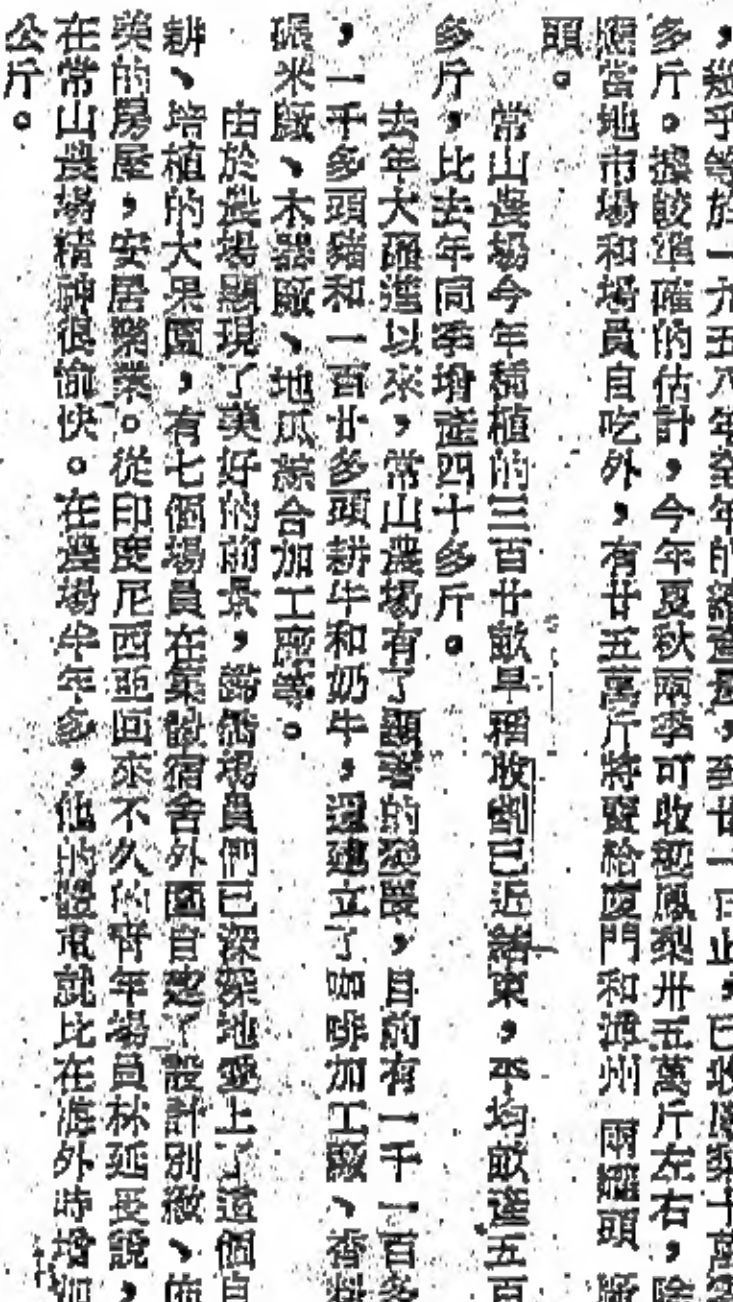 ，幾乎等於一九五八年全年的總產量，至廿一日止，已收鳳梨十萬
多斤。據較準確的估計，今年夏秋兩季可收獲鳳梨卅五萬斤左右，除
應當地市場和場員自吃外，有廿五萬斤將要給廈門和漳州 兩罐頭 廠
頭。
常山農場今年種植的三百廿畝早稻收割已近結束，平均畝產五百
多斤，比去年同季增產四十多斤。
去年大躍進以來，常山農場有了顯著的發展，目前有一千一百多
，一千多頭豬和一百廿多頭耕牛和奶牛，還建立了咖啡加工廠、香料
碾米廠、木器廠、地瓜綜合加工廠等。
由於農場顯現了美好的前景，歸僑場員們已深深地愛上了這個自
耕、培植的大果園，有七個場員在集體宿舍外圍自建了設計別緻、佈
美的房屋，安居樂業。從印度尼西亞回來不久的青年場員林延受說，
在常山農場精神很愉快。在農場半年多，他的體重就比在海外時增加
公斤。